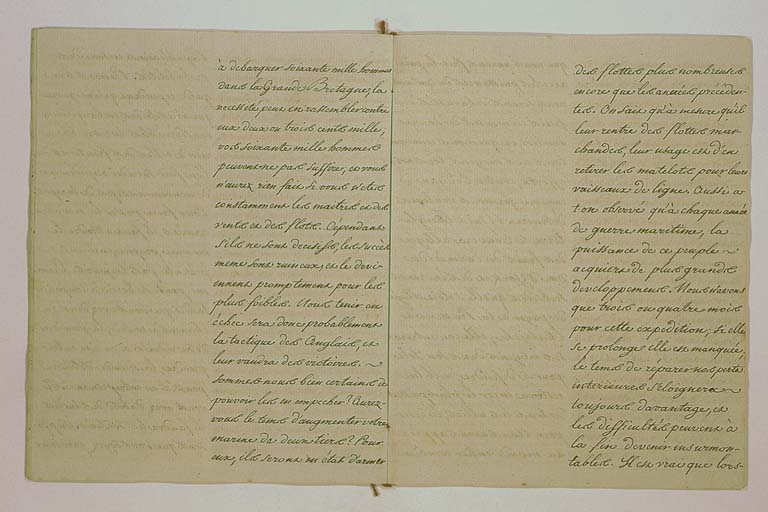 à debarquer soixante mille hommes
dans la Grande Bretagne, la
necessité peut en rassembler contre
eux deux ou trois cents mille,
vos soixante mille hommes
peuvent ne pas suffire, et vous
n'aurez rien fait si vous n'etes
constamment les maitres et des
vents et des flots. Cependant
s'ils ne sont decisifs, les succès
meme sont ruineux, et le devi-
ennent promptement pour les
plus foibles. Nous tenir en
échec sera donc probablement
la tactique des Anglais, et
leur vaudra des victoires.
Sommes nous bien certains de
pouvoir les en empecher? Aurez-
vous le tems d'augmenter votre
marine de deux tiers? Pour
eux, ils seront en état d'armer
des flottes plus nombreuses
encore que les années préceden-
tes. On sait qu'à mesure qu'il
leur rentre des flottes mar-
chandes, leur usage est d'en
retirer les matelots pour leurs
vaisseaux de ligne. Aussi a-
t-on observé qu'à chaque année
de guerre maritime, la
puissance de ce peuple
acquiert de plus grands
developpemens. Nous n'avons
que trois ou quatre mois
pour cette expedition; si elle
se prolonge elle est manquée;
le tems de réparer nos pertes
interieures s'éloignera
toujours davantage, et
les difficultés peuvent à
la fin devenir insurmon-
tables. Il est vrai que lors-